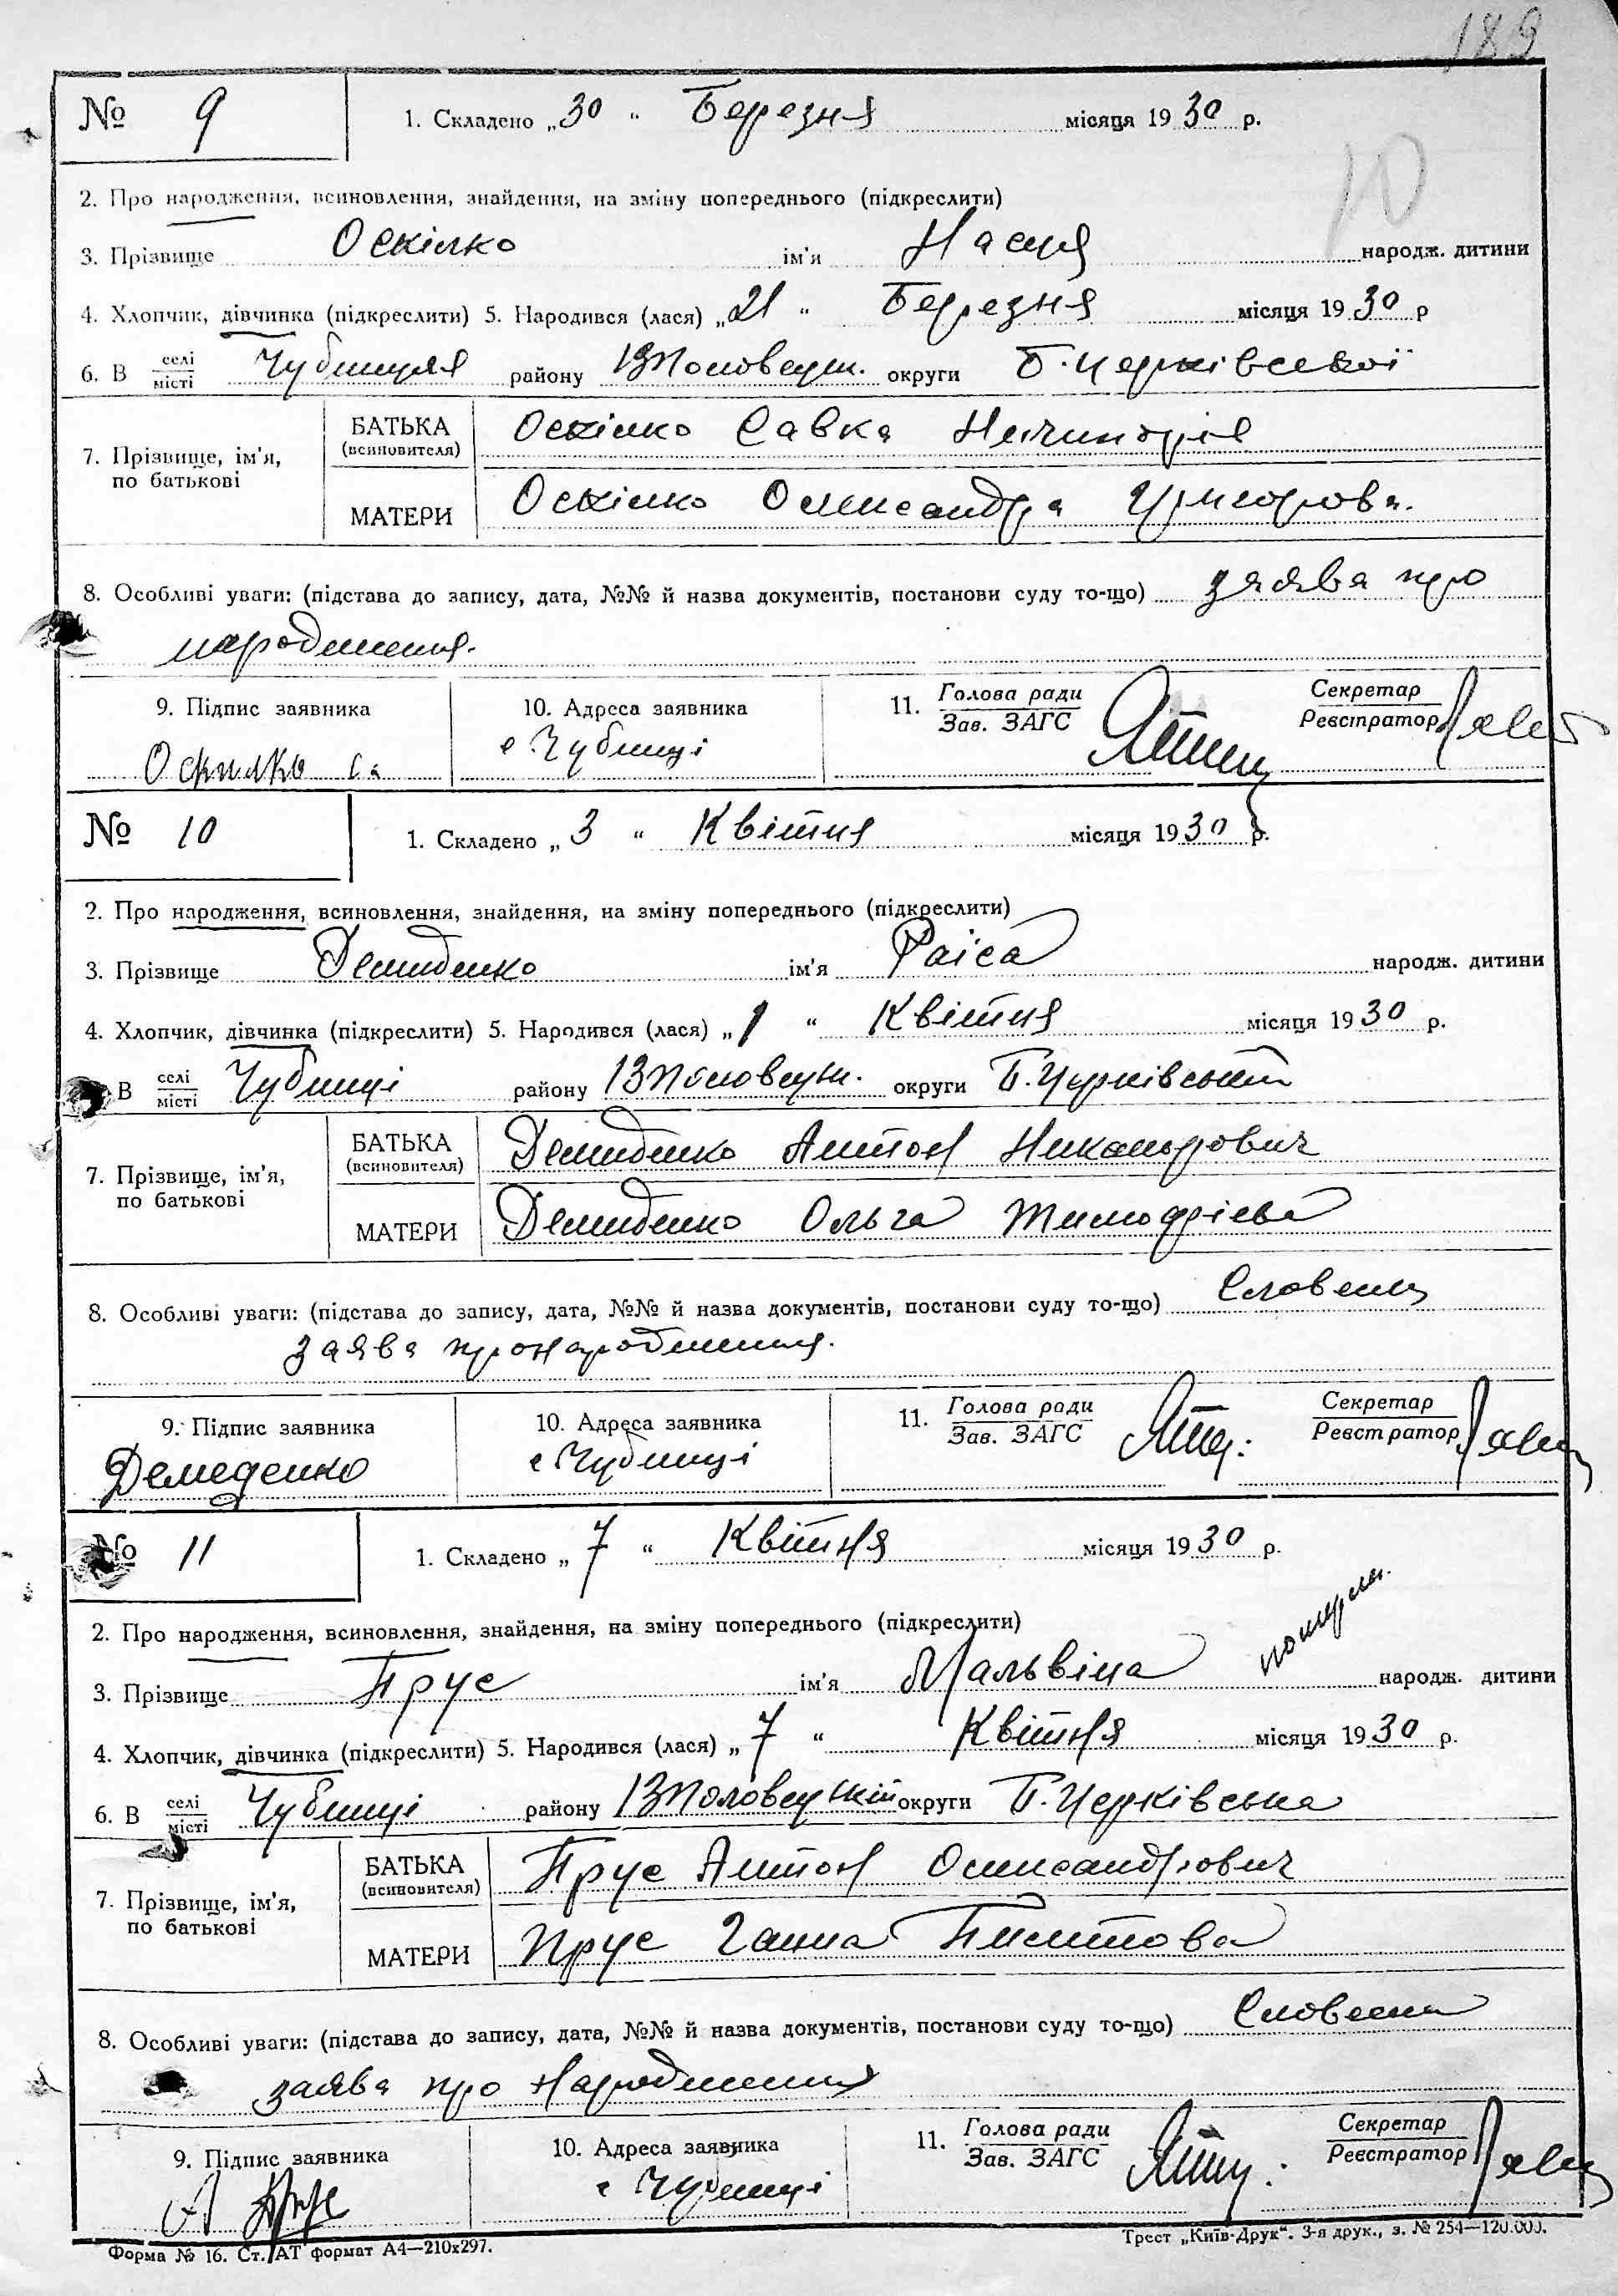 189
№ 9
1. Складено „30“ Березня місяця 1930 р.
10
2. Про народження, всиновлення, знайдення, на зміну попереднього (підкреслити)
3. Прізвище Оскілко ім'я Насця народж. дитини
4. Хлопчик, дівчинка (підкреслити) 5. Народився (лася) „21“ Березня місяця 1930 р
6. В селі місті району ВПоловецьк. округи Б. Церківської
7. Прізвище, ім'я, по батькові
БАТЬКА (всиновителя) Оскілко Савка
МАТЕРИ Оскілко Олександра Григорова.
8. Особливі уваги: (підстава до запису, дата, №№ й назва документів, постанови суду то-що) заява про
народження.
9. Підпис заявника
10. Адреса заявника
11. Голова ради Зав. ЗАГС
Секретар Реєстратор
Оскилко Са
с. Чубинці
№ 10
1. Складено „3“ Квітня місяця 1930 р.
2. Про народження, всиновлення, знайдення, на зміну попереднього (підкреслити)
3. Прізвище Демиденко ім'я Раіса народж. дитини
4. Хлопчик, дівчинка (підкреслити) 5. Народився (лася) „1“ Квітня місяця 1930 р.
В селі місті Чубинці району ВПоловецьк. округи Б. Церківській
7. Прізвище, ім'я, по батькові
БАТЬКА (всиновителя) Демиденко Антон Никанорович
МАТЕРИ Демиденко Ольга Тимофієва
8. Особливі уваги: (підстава до запису, дата, №№ й назва документів, постанови суду то-що) Словесн
заява про народження.
9. Підпис заявника
10. Адреса заявника
11. Голова ради Зав. ЗАГС
Секретар Реєстратор
Демеденко
с Чубинці
№ 11
1. Складено „7“ Квітня місяця 1930 р.
2. Про народження, всиновлення, знайдення, на зміну попереднього (підкреслити)
померла.
3. Прізвище Прус ім'я Мальвіна народж. дитини
4. Хлопчик, дівчинка (підкреслити) 5. Народився (лася) „7“ Квітня місяця 1930 р.
6. В селі місті Чубинці району ВПоловецький округи Б. Церківська
7. Прізвище, ім'я, по батькові
БАТЬКА (всиновителя) Прус Антон Олександрович
МАТЕРИ Прус Ганна
8. Особливі уваги: (підстава до запису, дата, №№ й назва документів, постанови суду то-що) Словесна
заява про народження
9. Підпис заявника
10. Адреса заявника
11. Голова ради Зав. ЗАГС
Секретар Реєстратор
А Прус
с Чубинці
Форма № 16. Ст. АТ формат А4—210х297.
Трест „Київ-Друк“. 3-я друк., з. № 254—120.000.